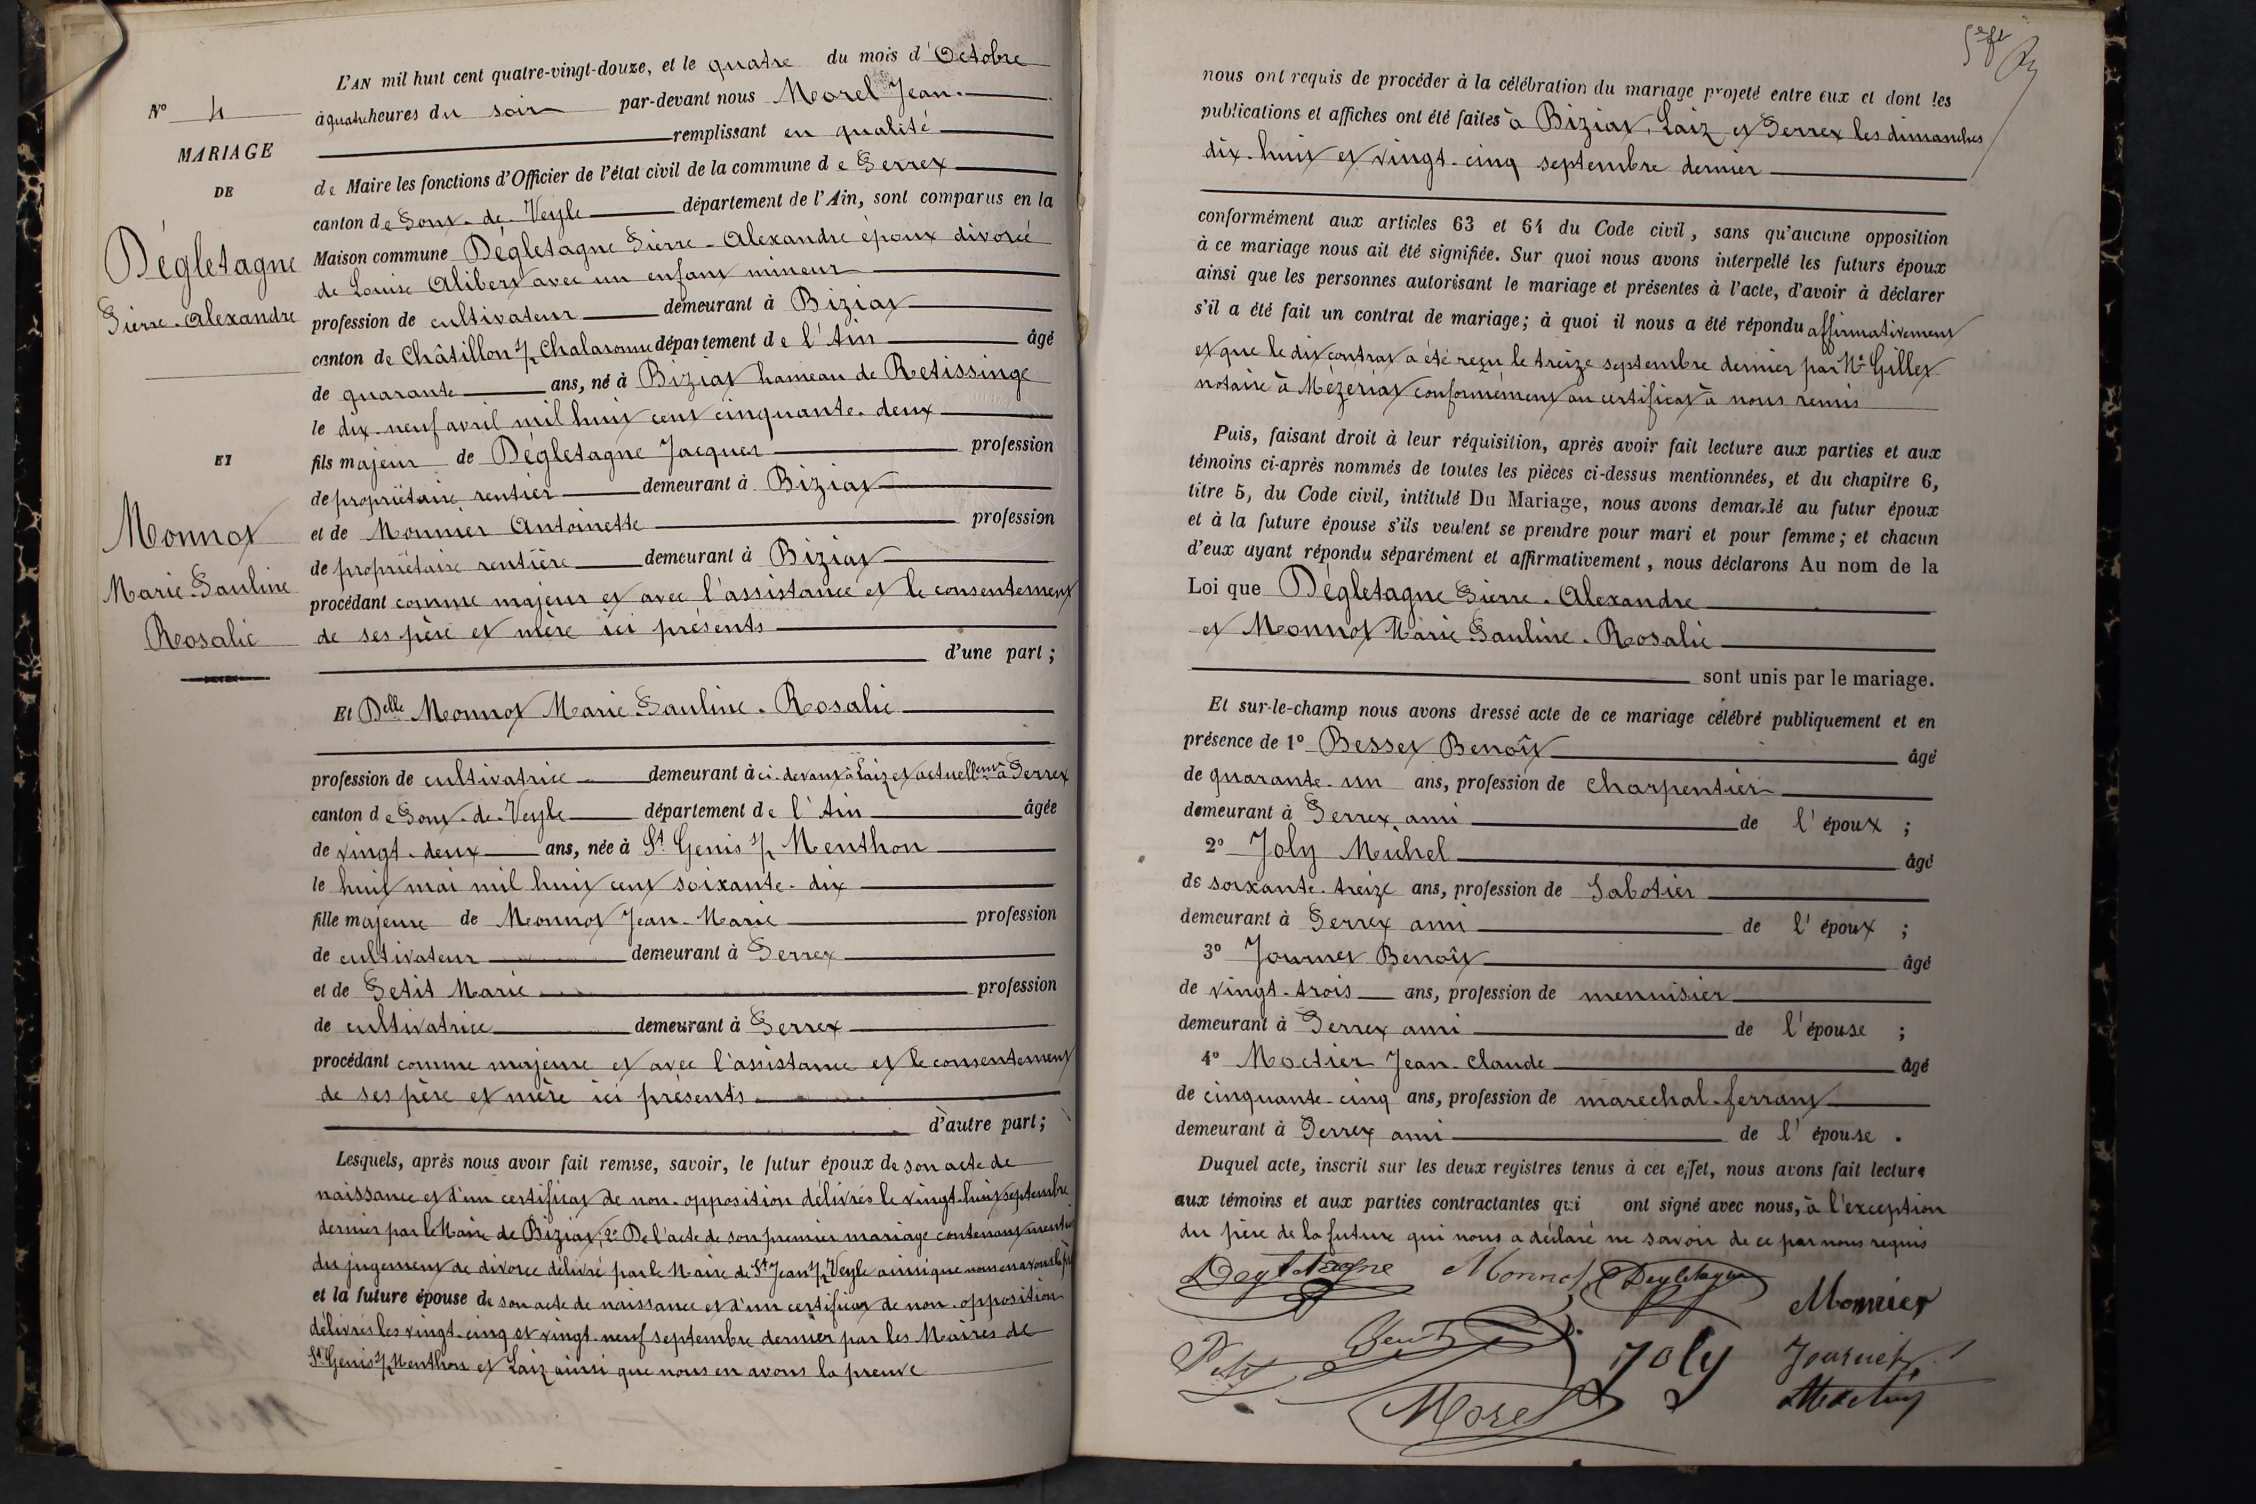 N° 4
MARIAGE
DE
Dégletagne
Pierre-Alexandre
ET
Monnot
Marie Pauline
Rosalie
L'AN mil huit cent quatre-vingt-douze, et le quatre du mois d'Octobre
à quatre heures du soir par-devant nous Morel Jean.
remplissant en qualité
de Maire les fonctions d'Officier de l'état civil de la commune de Perrex
canton de Pont-de-Veyle département de l'Ain, sont comparus en la
Maison commune Dégletagne Pierre-Alexandre époux divorcé
de Louise Alibert avec un enfant mineur
profession de cultivateur demeurant à Biziat
canton de Châtillon s/ Chalaronne département de l'Ain âgé
de quarante ans, né à Biziat hameau de Retissinge
le dix-neuf avril mil huit cent cinquante-deux
fils majeur de Dégletagne Jacques profession
de propriétaire rentier demeurant à Biziat
et de Monnier Antoinette profession
de propriétaire rentière demeurant à Biziat
procédant comme majeur et avec l'assistance et le consentement
de ses père et mère ici présents
d'une part;
Et Delle Monnot Marie Pauline-Rosalie
profession de cultivatrice demeurant à ci-devant à Laiz et actuellemt à Perrex
canton de Pont-de-Veyle département de l'Ain âgée
de vingt-deux ans, née à St Genis s/ Menthon
le huit mai mil huit cent soixante-dix
fille majeure de Monnot Jean-Marie profession
de cultivateur demeurant à Perrex
et de Petit Marie profession
de cultivatrice demeurant à Perrex
procédant comme majeure et avec l'assistance et le consentement
de ses père et mère ici présents
d'autre part;
Lesquels, après nous avoir fait remise, savoir, le futur époux de son acte de
naissance et d'un certificat de non-opposition délivrés le vingt-huit septembre
dernier par le Maire de Biziat, 2° De l'acte de son premier mariage contenant mention
du jugement de divorce délivré par le Maire de St Jean s/ Veyle ainsi que nous en avons la
et la future épouse de son acte de naissance et d'un certificat de non-opposition
délivrés les vingt-cinq et vingt-neuf septembre dernier par les Maires de
St Genis s/ Menthon et Laiz ainsi que nous en avons la preuve
nous ont requis de procéder à la célébration du mariage projeté entre eux et dont les
publications et affiches ont été faites à Biziat, Laiz et Perrex les dimanches
dix-huit et vingt-cinq septembre dernier
conformément aux articles 63 et 64 du Code civil, sans qu'aucune opposition
à ce mariage nous ait été signifiée. Sur quoi nous avons interpellé les futurs époux
ainsi que les personnes autorisant le mariage et présentes à l'acte, d'avoir à déclarer
s'il a été fait un contrat de mariage; à quoi il nous a été répondu affirmativement
et que le dit contrat a été reçu le treize septembre dernier par Me Gillet
notaire à Mézériat conformément au certificat à nous remis
Puis, faisant droit à leur réquisition, après avoir fait lecture aux parties et aux
témoins ci-après nommés de toutes les pièces ci-dessus mentionnées, et du chapitre 6,
titre 5, du Code civil, intitulé Du Mariage, nous avons demandé au futur époux
et à la future épouse s'ils veulent se prendre pour mari et pour femme; et chacun
d'eux ayant répondu séparément et affirmativement, nous déclarons Au nom de la
Loi que Dégletagne Pierre-Alexandre
et Monnot Marie Pauline-Rosalie
sont unis par le mariage.
Et sur-le-champ nous avons dressé acte de ce mariage célébré publiquement et en
présence de 1° Besset Benoît âgé
de quarante-un ans, profession de charpentier
demeurant à Perrex ami de l'époux ;
2° Joly Michel âgé
de soixante-treize ans, profession de Sabotier
demeurant à Perrex ami de l'époux ;
3° Journet Benoît âgé
de vingt-trois ans, profession de menuisier
demeurant à Perrex ami de l'épouse ;
4° Moctier Jean-Claude âgé
de cinquante-cinq ans, profession de marechal-ferrant
demeurant à Perrex ami de l'épouse.
Duquel acte, inscrit sur les deux registres tenus à cet effet, nous avons fait lecture
aux témoins et aux parties contractantes qui ont signé avec nous, à l'exception
du père de la future qui nous a déclaré ne savoir de ce par nous requis
Degletagne Monnot Degletagne Monnier
Petit Joly Journet
Morel Moctier